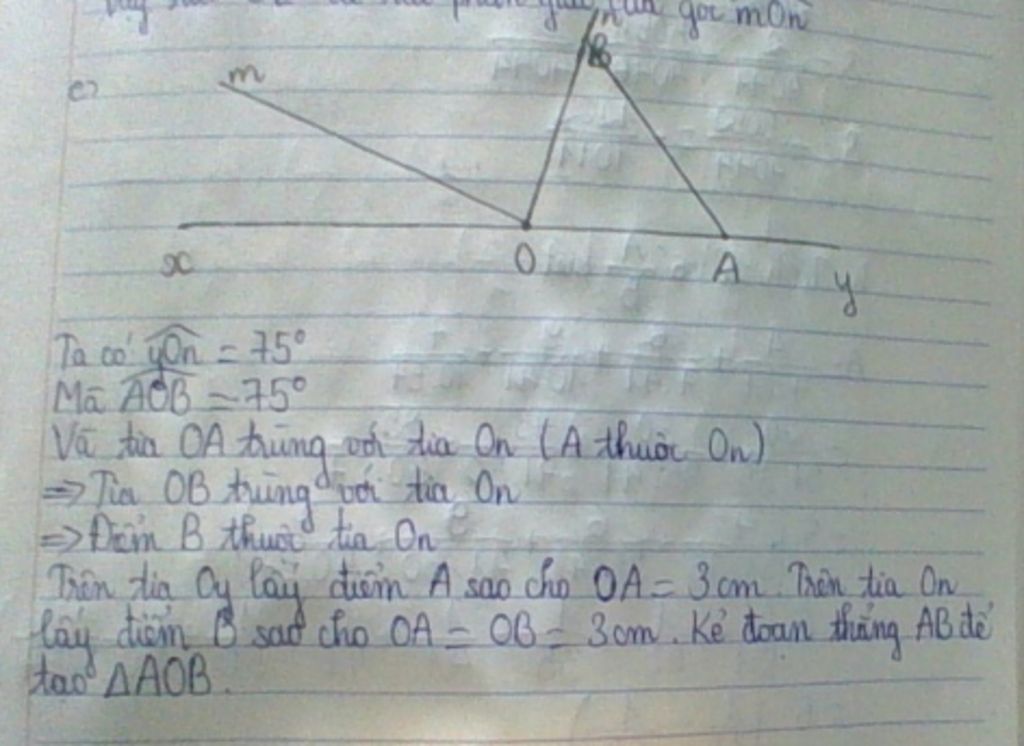 góc mOn
c)
m
n
B
x
O
A
y
Ta có yOn = 75°
Mà AOB = 75°
Và tia OA trùng với tia On (A thuộc On)
=> Tia OB trùng với tia On
=> Điểm B thuộc tia On
Trên tia Oy lấy điểm A sao cho OA = 3cm. Trên tia On
lấy điểm B sao cho OA = OB = 3cm. Kẻ đoạn thẳng AB để
tạo ΔAOB.